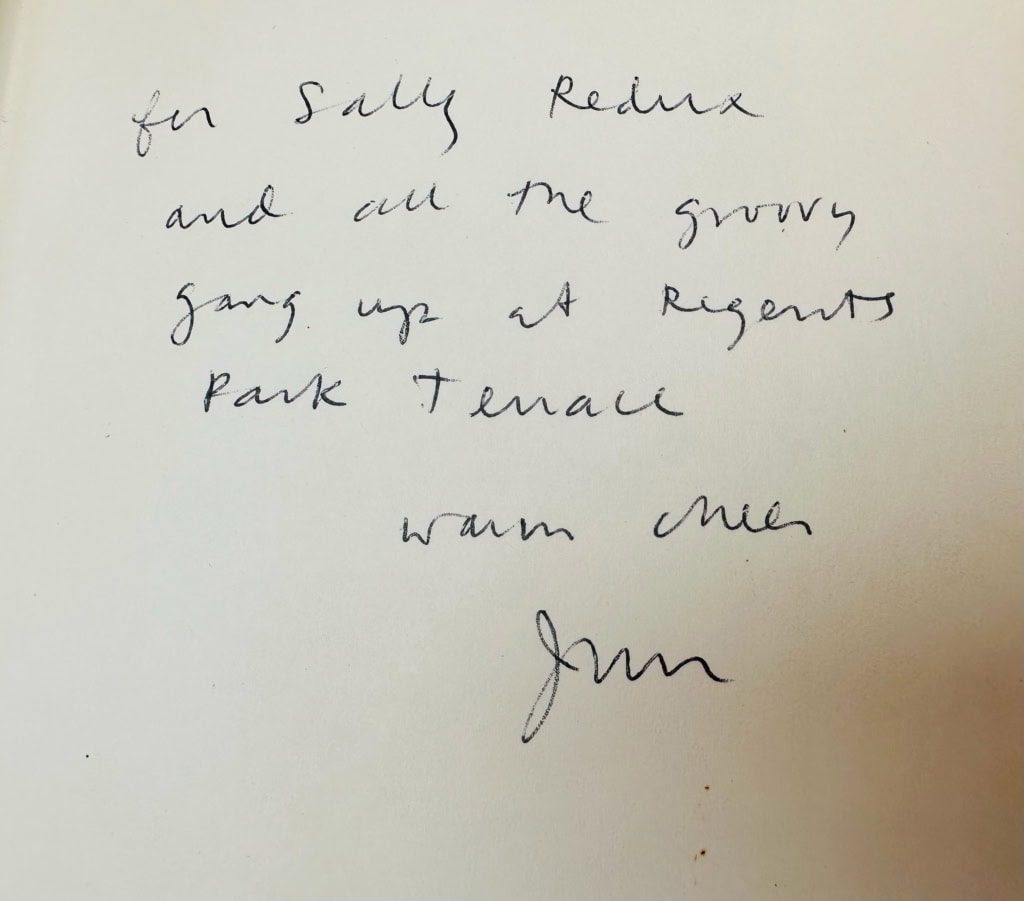 for Sally Redux
and all the groovy
gang up at Regents
Park Terrace
warm cheer